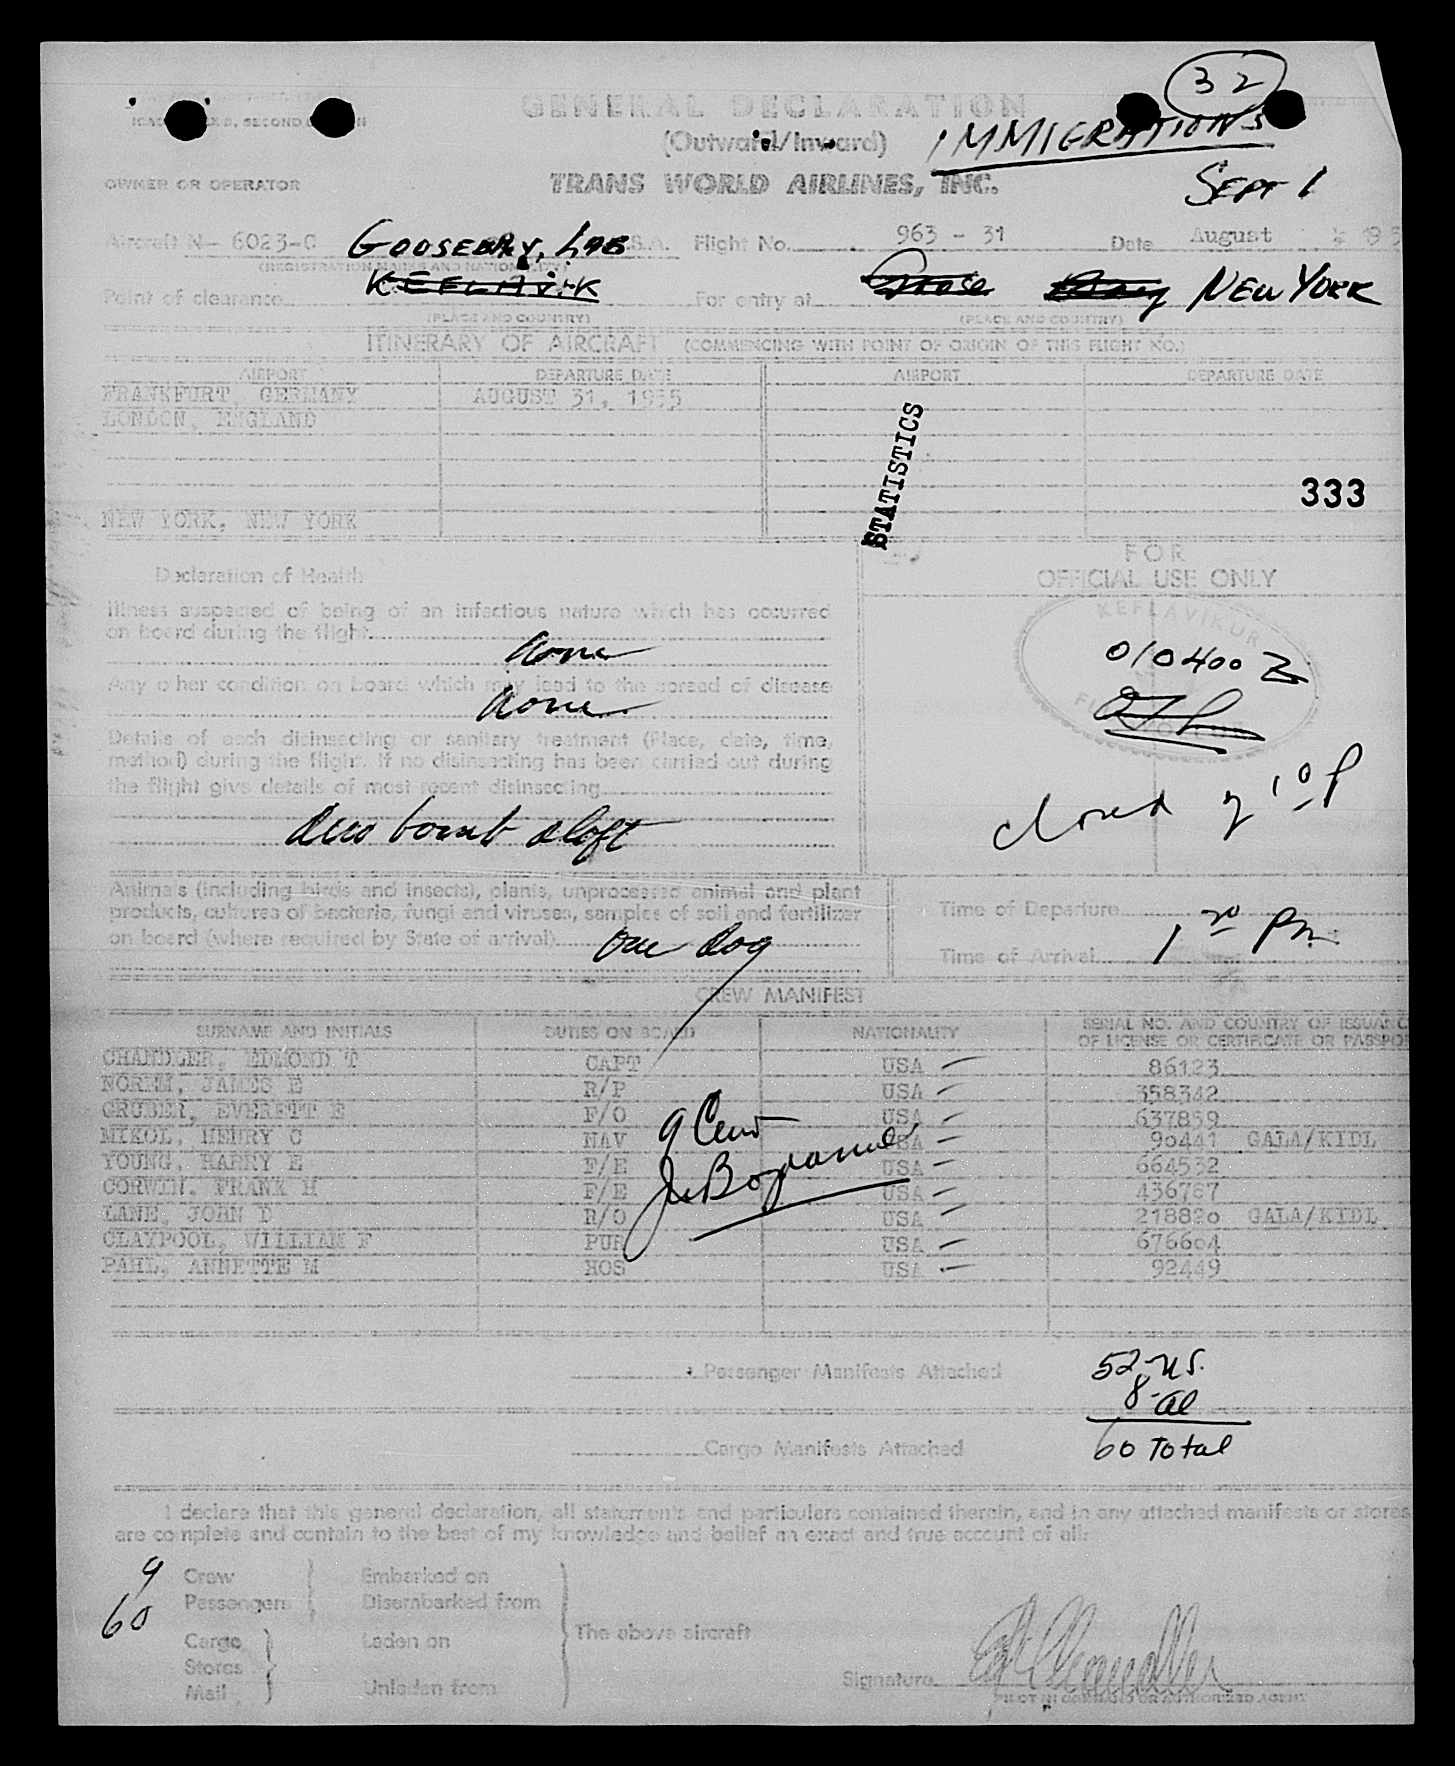 32
GENERAL DECLARATION
(Outward/Inward)
IMMIGRATIONS
OWNER OR OPERATOR
TRANS WORLD AIRLINES, INC.
SEPT 1
Aircraft N- 6023-C
GOOSEBAY, LAB
U.S.A.
Flight No. 963 - 31
Date August
(REGISTRATION MARKS AND NATIONALITY)
Point of clearance KEFLAVIK
For entry at Goose Bay NEW YORK
(PLACE AND COUNTRY) (PLACE AND COUNTRY)
ITINERARY OF AIRCRAFT (COMMENCING WITH POINT OF ORIGIN OF THIS FLIGHT NO.)
AIRPORT DEPARTURE DATE AIRPORT DEPARTURE DATE
FRANKFURT, GERMANY AUGUST 31, 1955
LONDON, ENGLAND
STATISTICS
333
NEW YORK, NEW YORK
FOR
OFFICIAL USE ONLY
Declaration of Health
Illness suspected of being of an infectious nature which has occurred
on board during the flight
none
KEFLAVIKUR
010400 Z
Any other condition on board which may lead to the spread of disease
none
Details of each disinsecting or sanitary treatment (Place, date, time,
method) during the flight. If no disinsecting has been carried out during
the flight give details of most recent disinsecting
bomb aloft
Animals (including birds and insects), plants, unprocessed animal and plant
products, cultures of bacteria, fungi and viruses, samples of soil and fertilizer
on board (where required by State of arrival) one dog
Time of Departure
Time of Arrival 1 20 PM
CREW MANIFEST
SURNAME AND INITIALS DUTIES ON BOARD NATIONALITY SERIAL NO. AND COUNTRY OF ISSUANC
OF LICENSE OR CERTIFICATE OR PASSPO
CHANDLER, EDMOND T CAPT USA 86123
NOREM, JAMES E R/P USA 358342
GRUBER, EVERETT E F/O USA 637859
MIKOL, HENRY C NAV USA 90441 GALA/KIDL
YOUNG, HARRY E F/E USA 664532
CORWIN, FRANK H F/E USA 436767
LANE, JOHN D R/O USA 218820 GALA/KIDL
CLAYPOOL, WILLIAM F PUR USA 676604
PAHL, ANNETTE M HOS USA 92449
9 Crew
Passenger Manifests Attached
52-US.
8-al
Cargo Manifests Attached
60 Total
I declare that this general declaration, all statements and particulars contained therein, and in any attached manifests or stores
are complete and contain to the best of my knowledge and belief an exact and true account of all:
9 Crew Embarked on
60 Passengers Disembarked from
The above aircraft
Cargo Laden on
Stores
Mail Unladen from
Signature E T Chandler
PILOT IN COMMAND OR AUTHORIZED AGENT